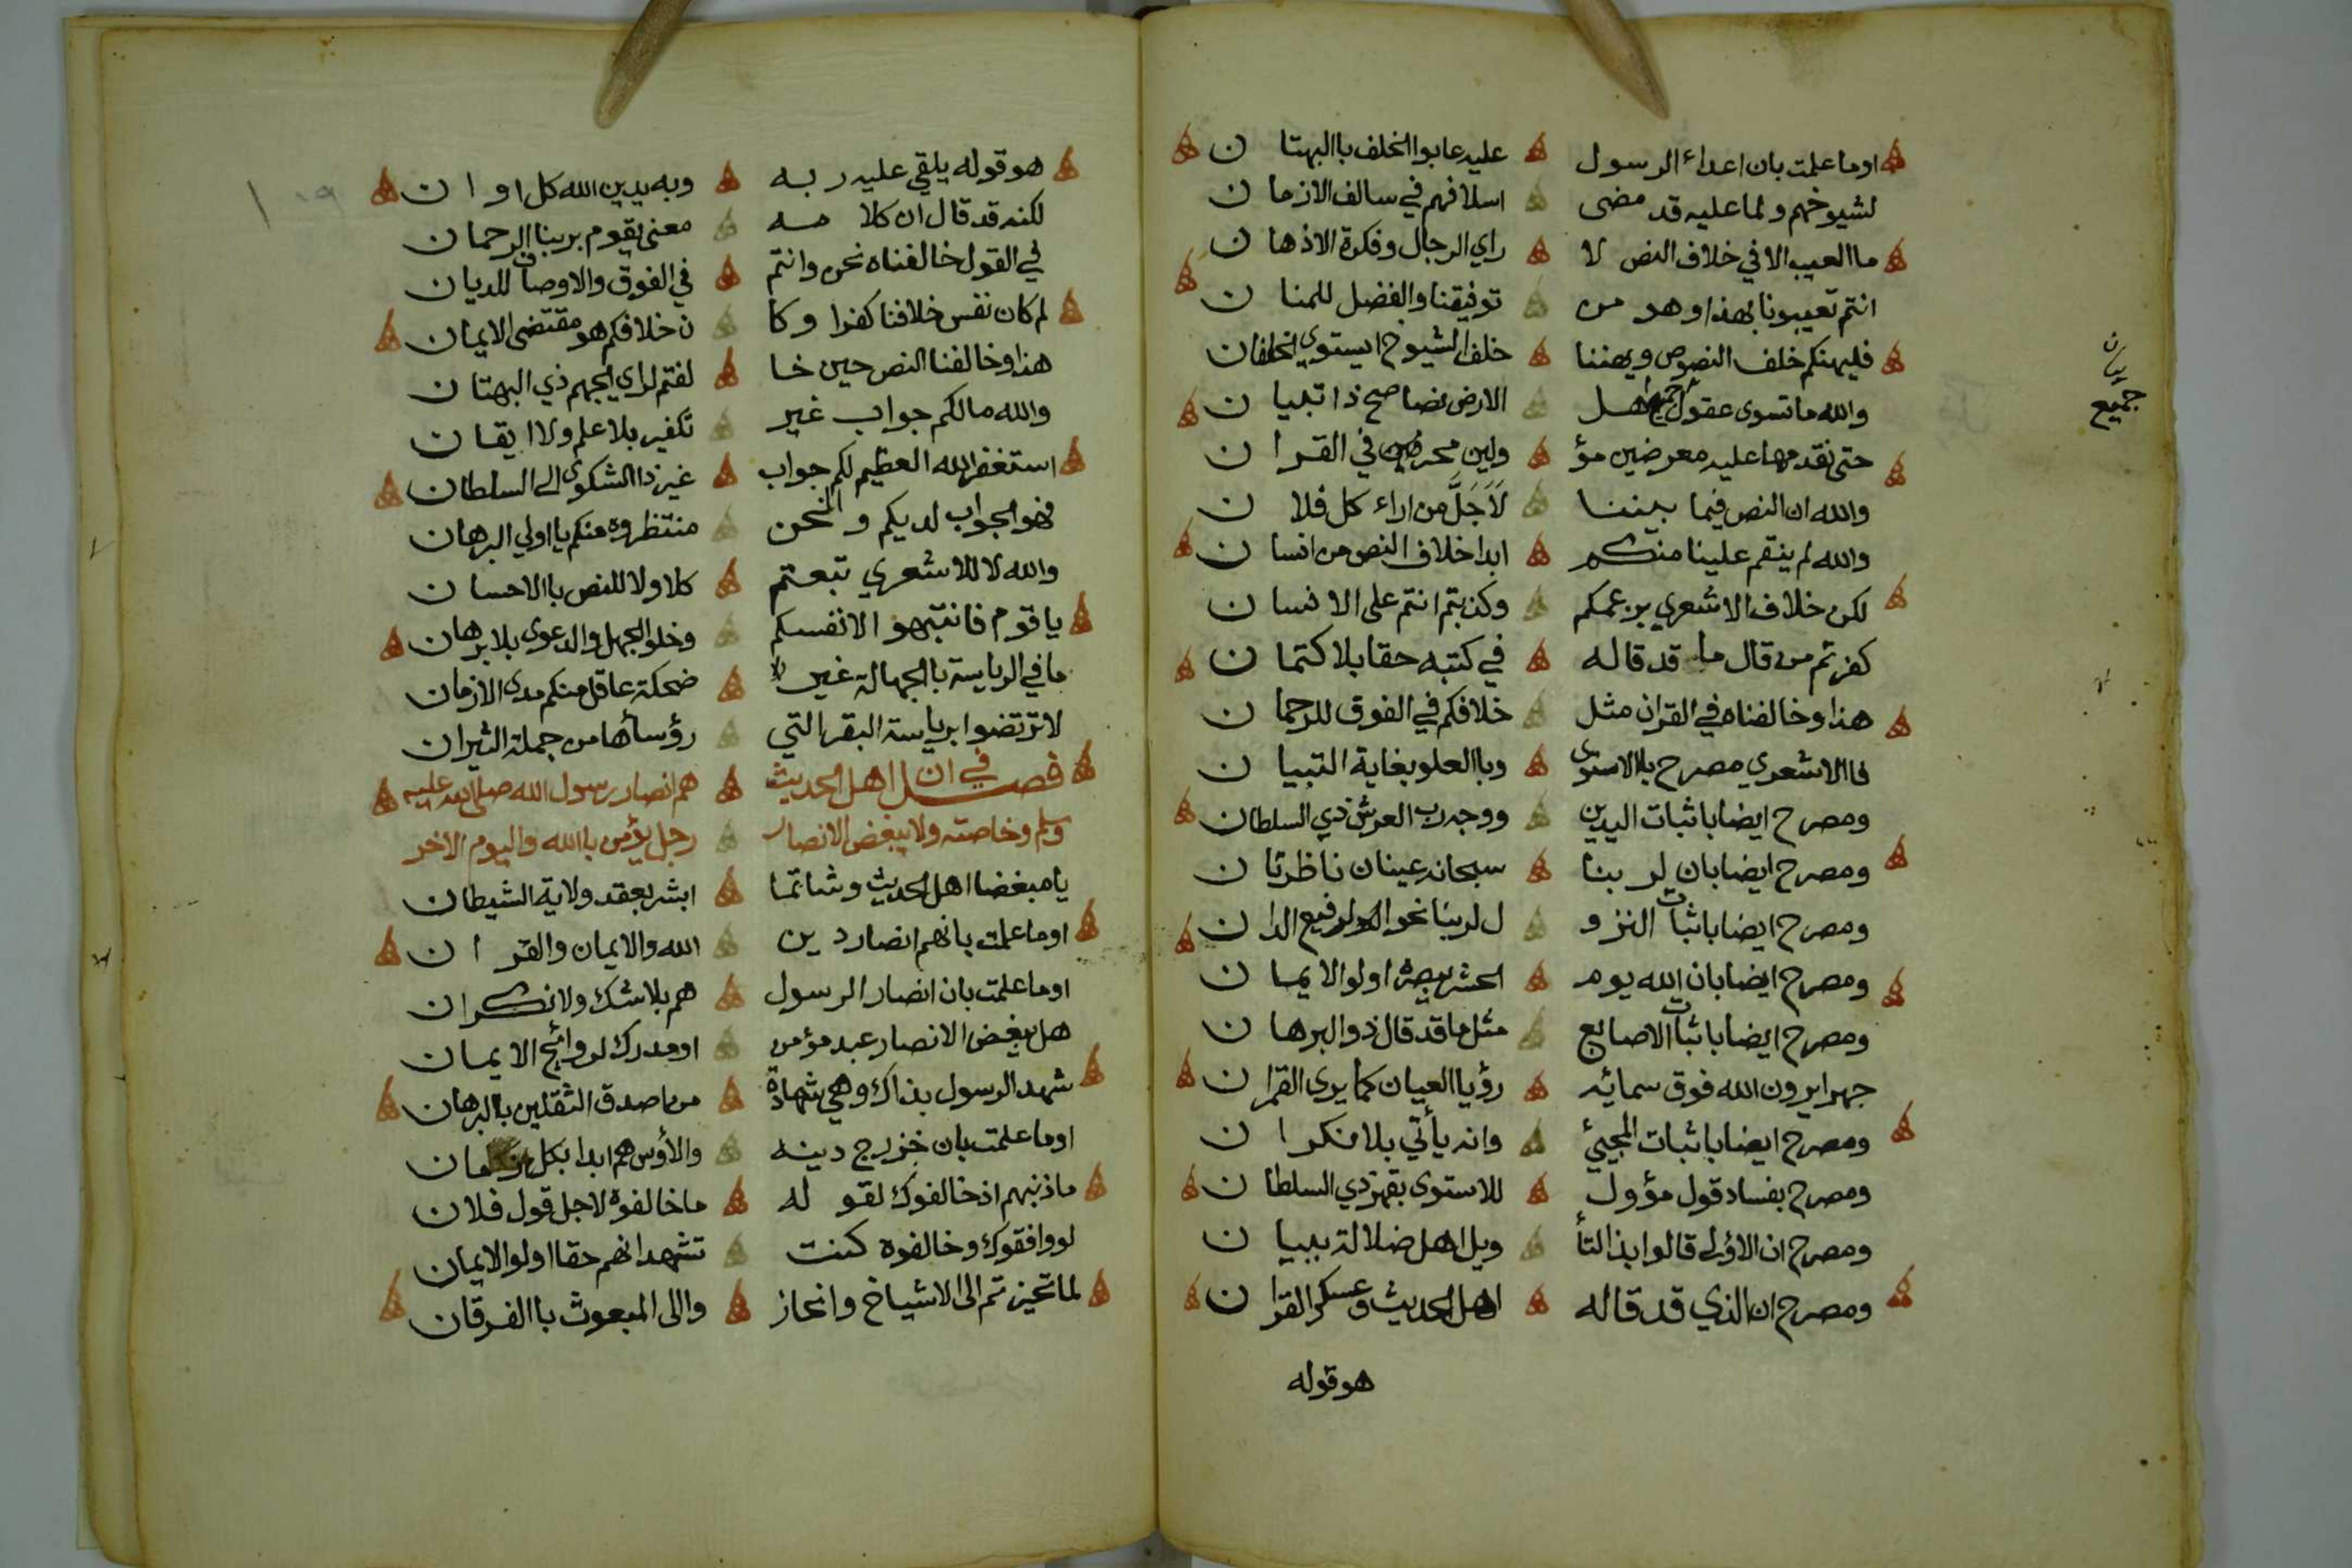 اوما علمت بان اعداء الرسول عليه عابوا الخلف باالبهتا ن
لشيوخهم ولما عليه قد مضى اسلافهم في سالف الازما ن
ماالعيب الا في خلاف النص لا راي الرجال وفكرة الاذها ن
انتم تعيبونا بهذا وهو من توفيقنا والفضل للمنا ن
فليهنكم خلف النصوص ويهننا خلف الشيوخ ايستوي الخلفان
والله ما تسوى عقول جميع اهل الارض نصا صح ذا تبيا ن
حتى نقدمها عليه معرضين مؤ ولين محرفين في القرا ن
والله ان النص فيما بيننا لَاَجَلَّ من اراء كل فلا ن
والله لم ينقم علينا منكم ابدا خلاف النص من انسا ن
لكن خلاف الاشعري بزعمكم وكذبتم انتم على الانسا ن
كفرتم من قال ما قد قاله في كتبه حقا بلا كتما ن
هذا وخالفناه في القران مثل خلافكم في الفوق للرحما ن
فاالاشعري مصرح باالاستوى وباالعلو بغاية التبيا ن
ومصرح ايضا باثبات اليدين ووجه رب العرش ذي السلطان
ومصرح ايضا بان لربنا سبحانه عينان ناظرتا ن
ومصرح ايضا باثبات النزو ل لربنا نحو الرفيع الدا ن
ومصرح ايضا بان الله يوم الحشر يبصره اولو الايما ن
ومصرح ايضا باثبات الاصابع مثل ما قد قال ذو البرها ن
جهرا يرون الله فوق سمائه رؤيا العيان كما يرى القمرا ن
ومصرح ايضا باثبات المجيئ وانه يأتي بلا نكرا ن
ومصرح بفساد قول مؤول للاستوى بقهر ذي السلطا ن
ومصرح ان الاؤلى قالوا بذا التأ ويل اهل ضلالة ببيا ن
ومصرح ان الذي قد قاله اهل الحديث وعسكر القرا ن
هو قوله
بيان
جميع
هو قوله يلقي عليه ربه وبه يدين الله كل اوا ن
لكنه قد قال ان كلا مه معنى يقوم بربنا الرحمان
في القول خالفناه نحن وانتم في الفوق والاوصاف للديان
لم كان نفس خلافنا كفرا وكا ن خلافكم هو مقتضى الايمان
هذا وخالفنا النص حين خا لفتم لراي الجهم ذي البهتا ن
والله مالكم جواب غير تكفير بلا علم ولا ايقا ن
استغفر الله العظيم لكم جواب غير ذا الشكوى الى السلطان
فهو الجواب لديكم ولنحن منتظروه منكم يا اولي البرهان
والله لا للاشعري تبعتم كلا ولا للنص باالاحسا ن
يا قوم فانتبهو الانفسكم وخلو الجهل والدعوى بلا برهان
ما في الرياسة باالجهالة غير ضحكة عاقل منكم مدى الازمان
لا ترتضوا برياسة البقر التي رؤساؤها من جملة الثيران
فصل في ان اهل الحديث هم انصار رسول الله صلى الله عليه
وسلم وخاصته ولا يبغض الانصار رجل يؤمن باالله واليوم الاخر
يا مبغضا اهل الحديث وشاتما ابشر بعقد ولاية الشيطان
اوما علمت بانهم انصار دين الله والايمان والقر ا ن
اوما علمت بان انصار الرسول هم بلا شك ولا نكران
هل يبغض الانصار عبد مؤمن او مدرك لروائح الايمان
شهد الرسول بذاك وهي شهادة من اصدق الثقلين باالبرهان
اوما علمت بان خزرج دينه والأوس هم ابدا بكل زمان
ما ذنبهم اذ خالفوك لقو له ما خالفوه لاجل قول فلان
لو وافقوك وخالفوه كنت تشهد انهم حقا اولو الايمان
لما تحيزتم الى الاشياخ وانحاز والى المبعوث باالفرقان